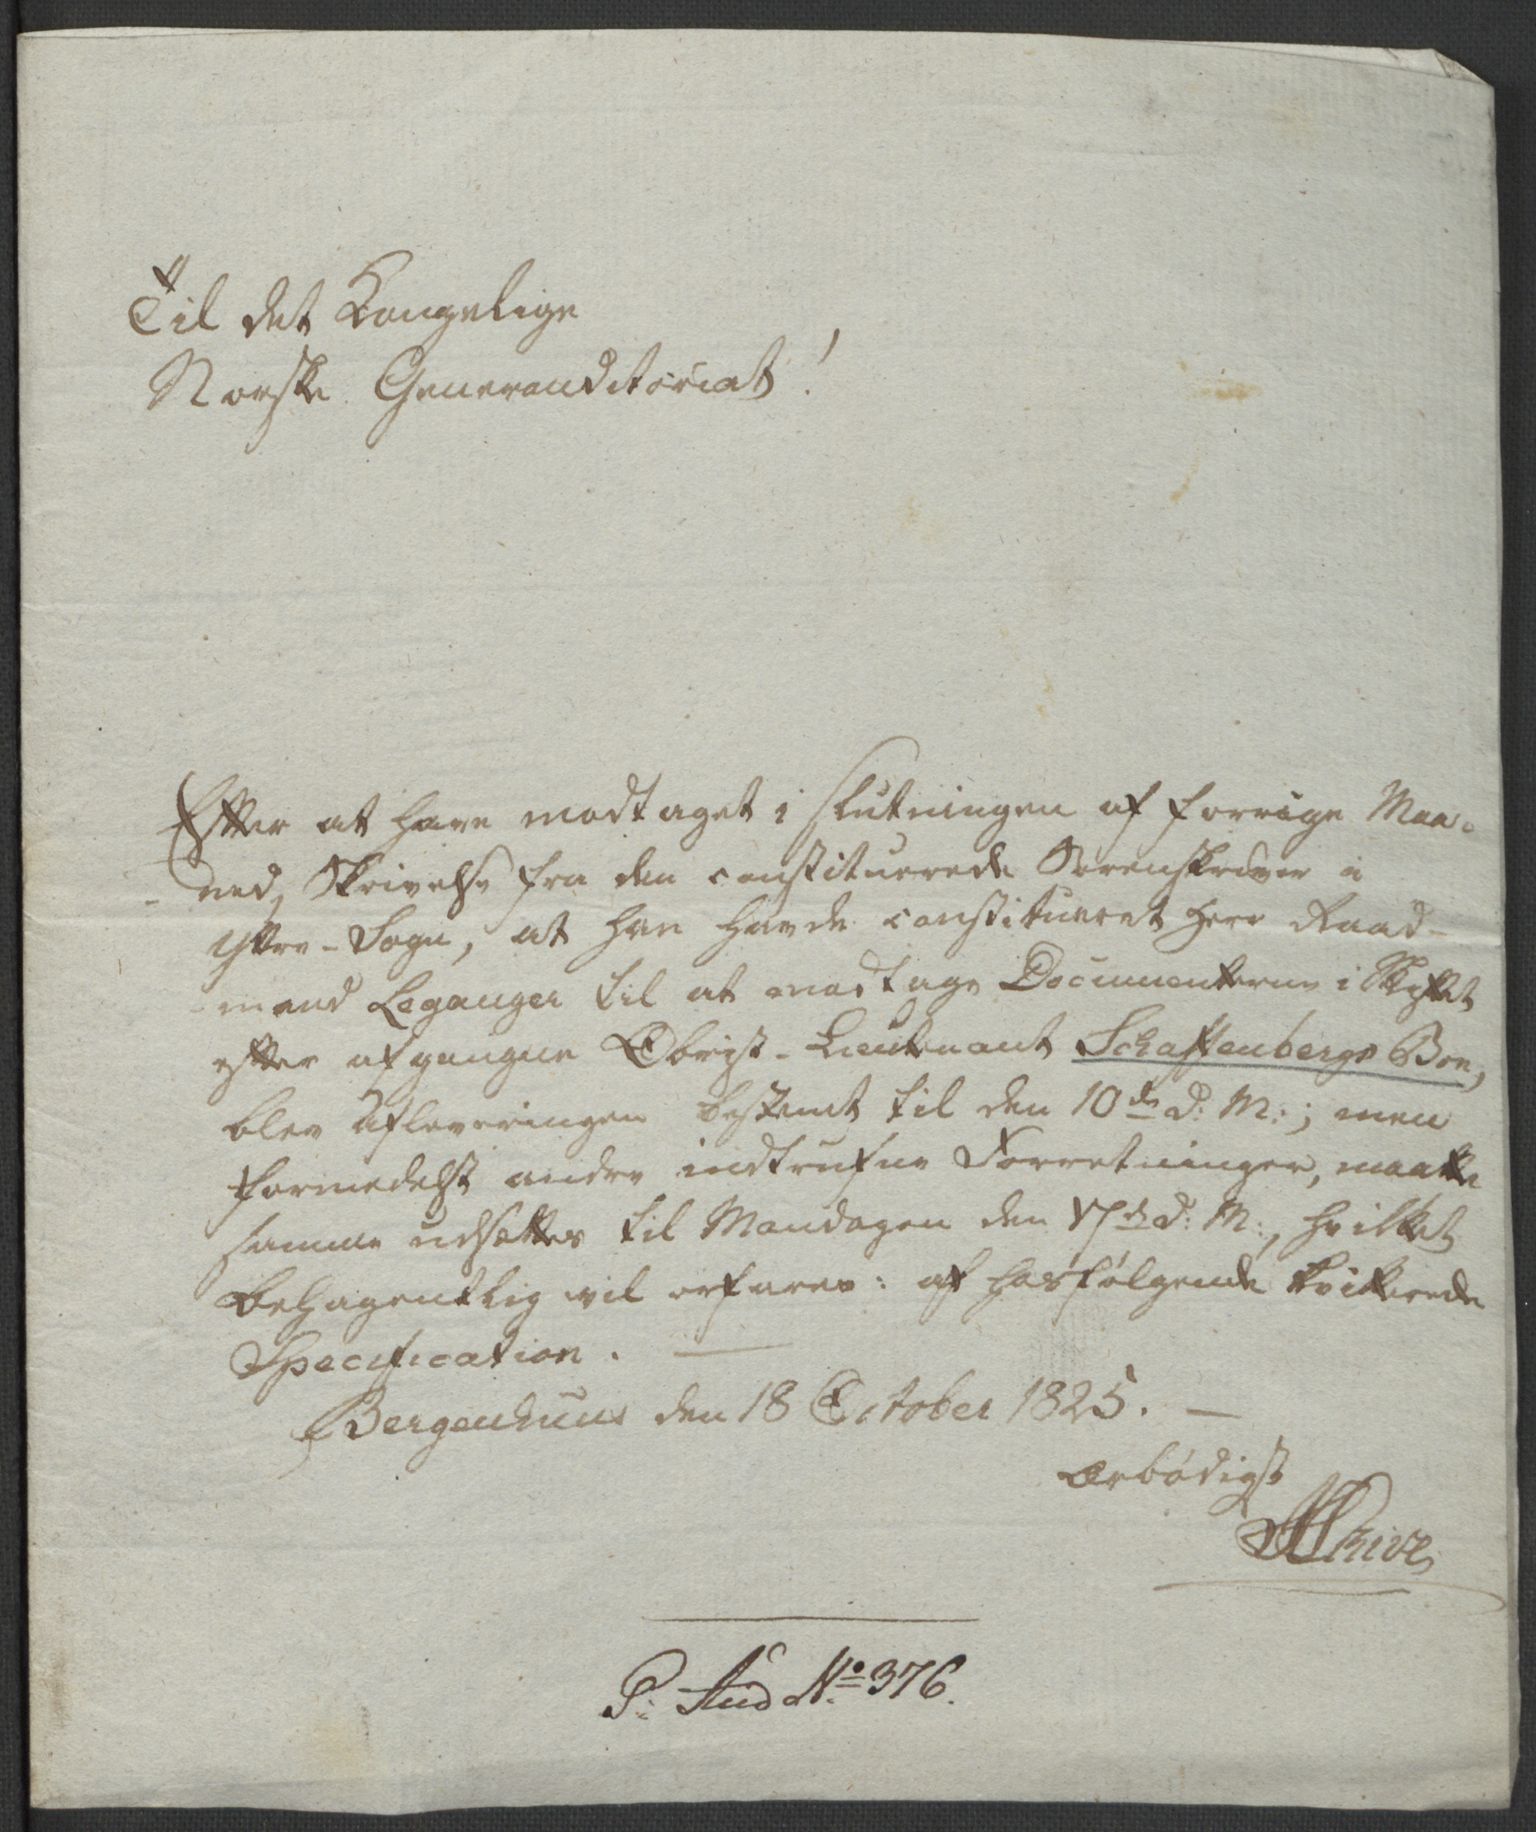 Til det Kongelige
Norske Generauditoriat!
Efter at have modtaget i slutningen af forrige Maa-
ned, Skrivelse fra den constituerede Sorenskriver i
Yttre-Sogn, at han havde constitueret Herr Raad-
mand Leganger til at modtage Documenterne i Skiftet
efter afgangne Obrist-Lieutenant Schaffenbergs Boe,
blev Afleveringen bestemt til den 10de d: M:; men
formedelst andre indtrufne Forretninger, maatte
samme udsættes til Mandagen den 17de d: M:, hvilket
behagentlig vil erfares: af hosfølgende kvitterede
Specification. —
Bergenhuus den 18 October 1825. —
ærbødigst
P. Aud No 376.